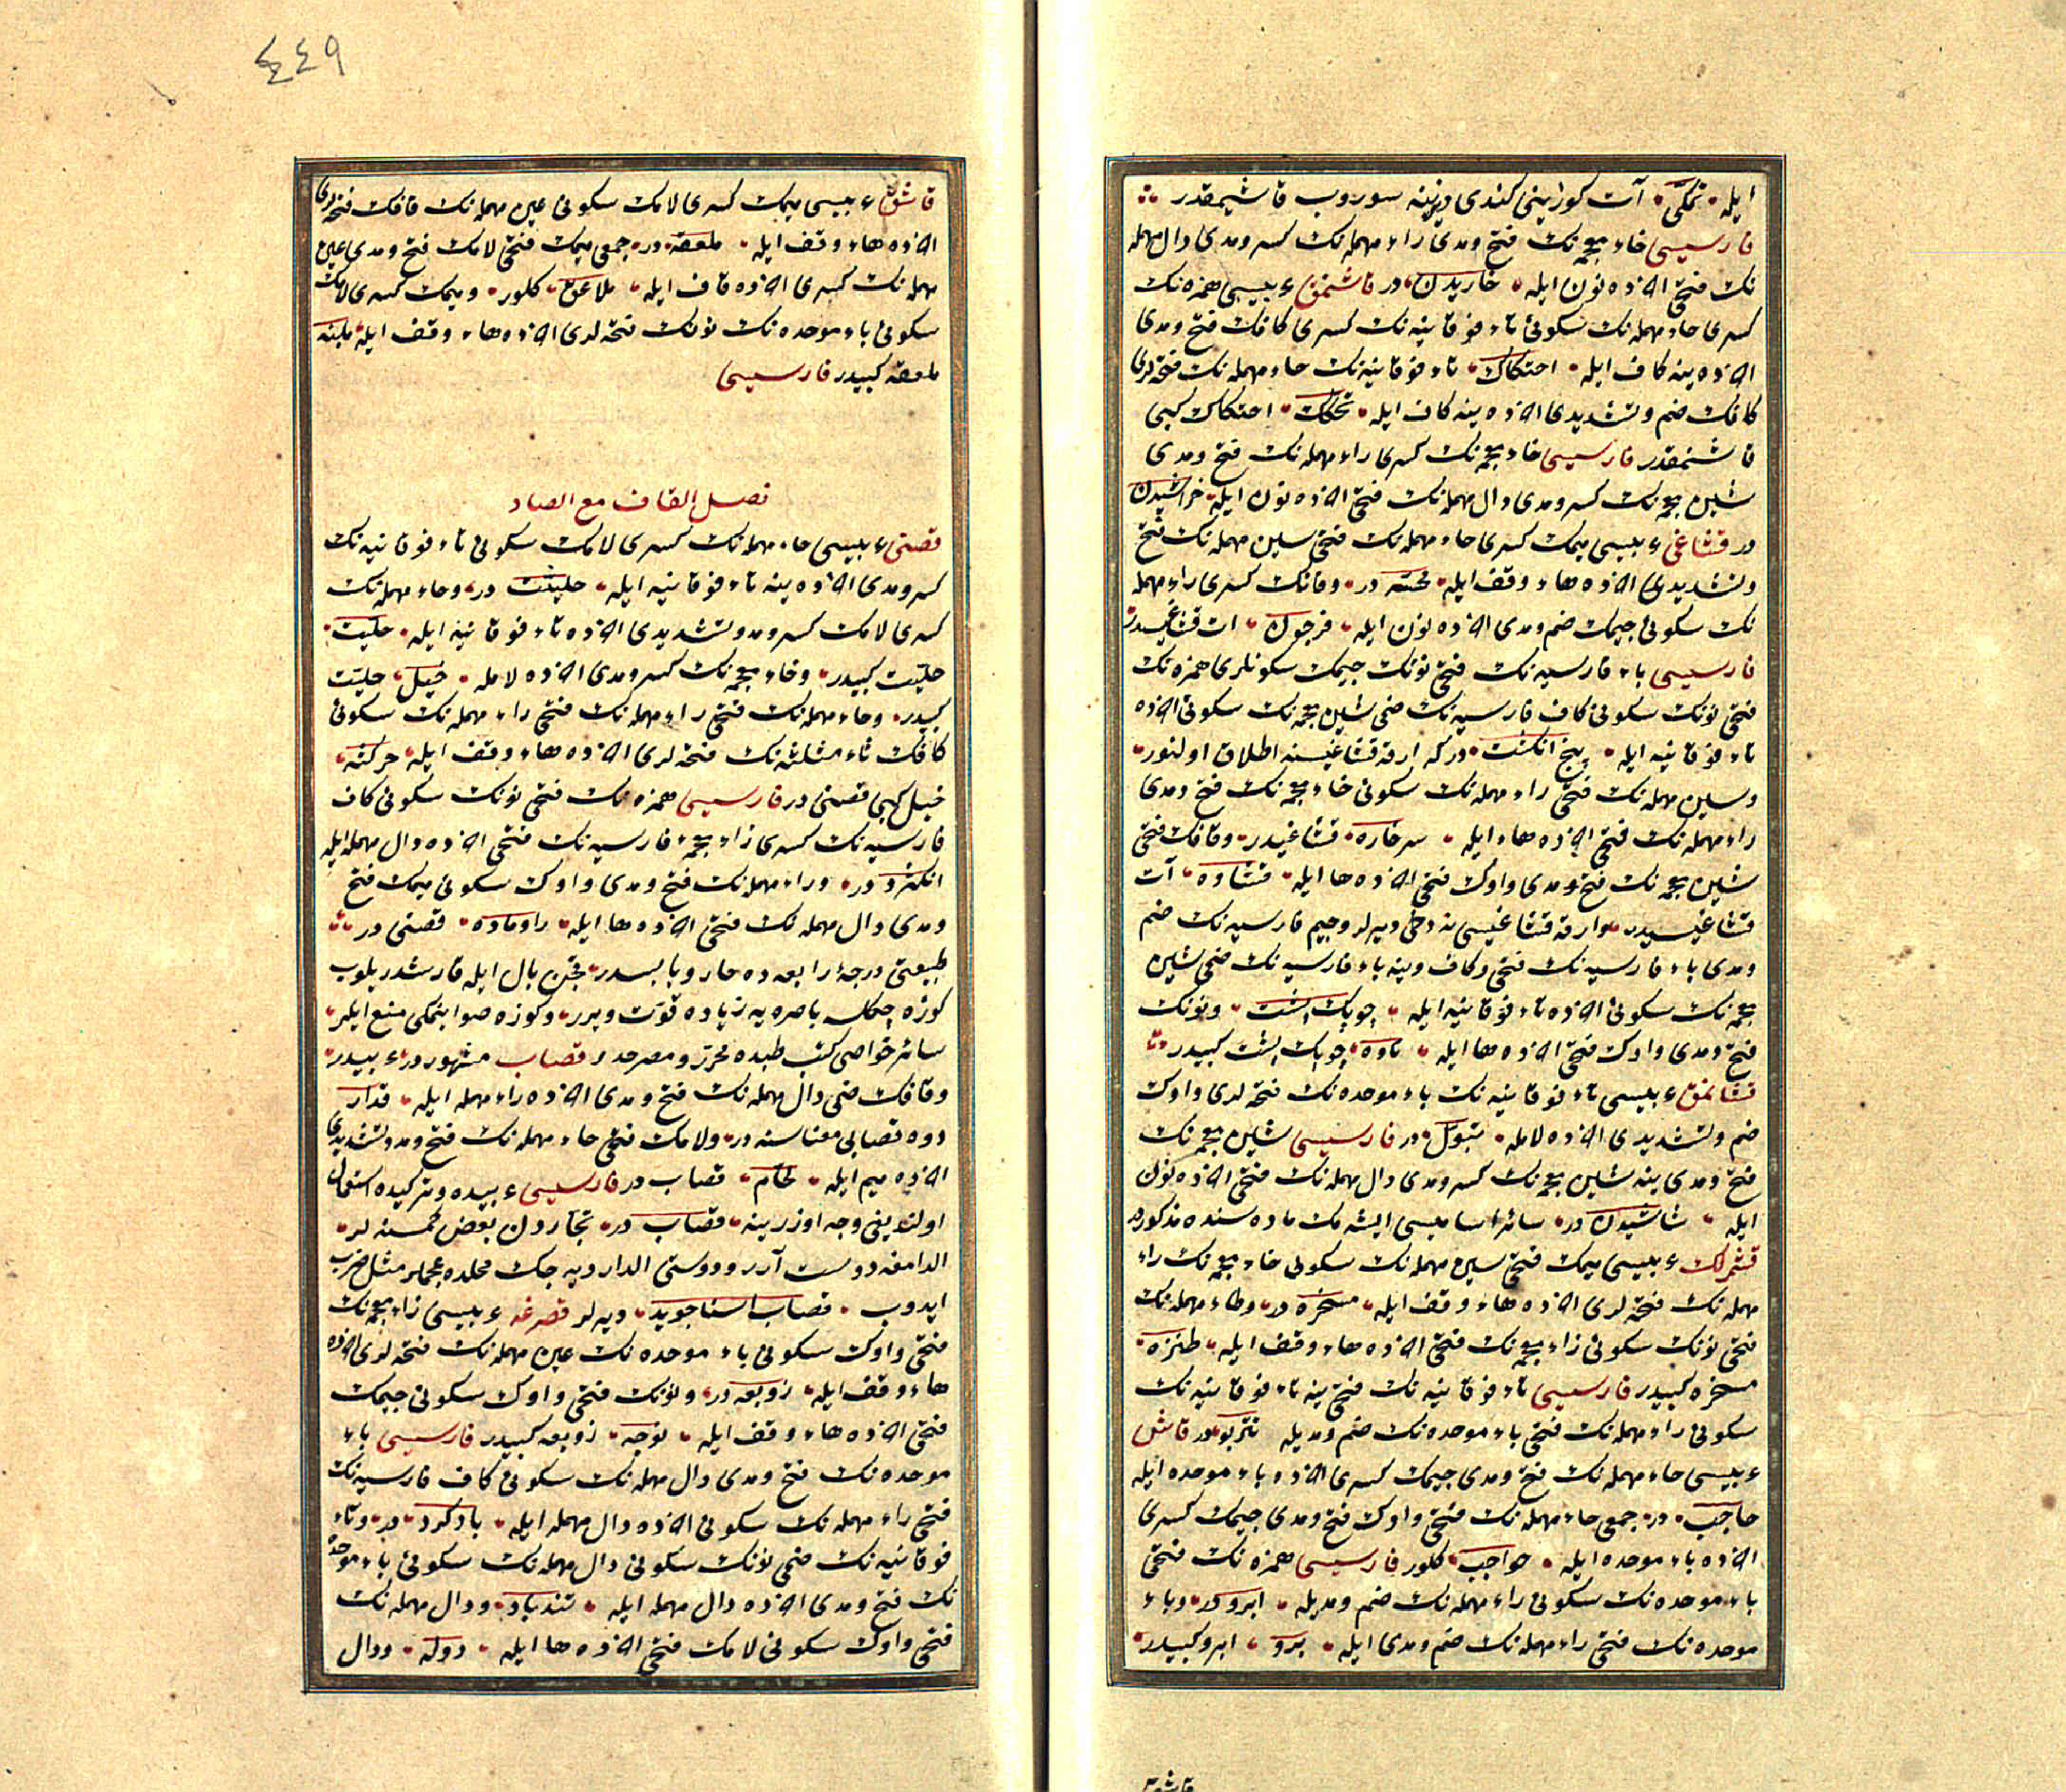 ايله تمكّى آت كوزينى كندى ديزينه سوروب قاشيمقدر
فارسيسى خاء معجمه نك فتح ومدى راء مهمله نك كسر ومدى دال مهمله
نك فتحى اخرده نون ايله خاريدن در قاشنمق عربيسى همزه نك
كسرى حاء مهمله نك سكونى تاء فوقانيه نك كسرى كافك فتح ومدى
اخرده ينه كاف ايله احتكاك تاء فوقانيه نك حاء مهمله نك فتحه لرى
كافك ضم وتشديدى اخرده ينه كاف ايله تحكك احتكاك كبى
قاشنمقدر فارسيسى خاء معجمه نك كسرى راء مهمله نك فتح ومدى
شين معجمه نك كسر ومدى دال مهمله نك فتحى اخرده نون ايله خراشيدن
در قشاغى عربيسى ميمك كسرى حاء مهمله نك فتحى سين مهمله نك فتح
وتشديدى اخرده هاء وقف ايله محسّه در وفانك كسرى راء مهمله
نك سكونى جيمك ضم ومدى اخرده نون ايله فرجون ات قشاغيسيدر
فارسيسى باء فارسيه نك فتحى نونك جيمك سكونلرى همزه نك
فتحى نونك سكونى كاف فارسيه نك ضمى شين معجمه نك سكونى اخرده
تاء فوقانيه ايله پنج انكشت در كه ارقه قشاغيسنه اطلاق اولنور
وسين مهمله نك فتحى راء مهمله نك سكونى خاء معجمه نك فتح ومدى
راء مهمله نك فتحى اخرده هاء ايله سرخاره قشاغيدر وقافك فتحى
شين معجمه نك فتح ومدى واوك فتحى اخرده ها ايله قشاوه آت
قشاغيسيدر وارقه قشاغيسى نه دخى ديرلر وجيم فارسيه نك ضم
ومدى باء فارسيه نك فتحى وكاف وينه باء فارسيه نك ضمى شين
معجمه نك سكونى اخرده تاء فوقانيه ايله چوپك پشت ونونك
فتح ومدى واوك فتحى اخرده ها ايله ناوه چوپك پشت كبيدر
قشانمق عربيسى تاء فوقانيه نك باء موحده نك فتحه لرى واوك
ضم وتشديدى اخرده لامله تبوّل در فارسيسى شين معجمه نك
فتح ومدى ينه شين معجمه نك كسر ومدى دال مهمله نك فتحى اخرده نون
ايله شاشيدن در سائر اساميسى ايشه مك ماده سنده مذكوردر
قشمرلك عربيسى ميمك فتحى سين مهمله نك سكونى خاء معجمه نك راء
مهمله نك فتحه لرى اخرده هاء وقف ايله مسخره در وطاء مهمله نك
فتحى نونك سكونى زاء معجمه نك فتحى اخرده هاء وقف ايله طنزه
مسخره كبيدر فارسيسى تاء فوقانيه نك فتحى ينه تاء فوقانيه نك
سكونى راء مهمله نك فتحى باء موحده نك ضم ومديله تتربو در قاش
عربيسى حاء مهمله نك فتح ومدى جيمك كسرى اخرده باء موحده ايله
حاجب در جمعى حاء مهمله نك فتحى واوك فتح ومدى جيمك كسرى
اخرده باء موحده ايله حواجب كلور فارسيسى همزه نك فتحى
باء موحده نك سكونى راء مهمله نك ضم ومديله ابرو در وباء
موحده نك فتحى راء مهمله نك ضم ومدى ايله برو ابرو كبيدر
قاشق
٤٤٩
قاشق عربيسى ميمك كسرى لامك سكونى عين مهمله نك قافك فتحه لرى
اخرده هاء وقف ايله ملعقه در جمعى ميمك فتحى لامك فتح ومدى عين
مهمله نك كسرى اخرده قاف ايله ملاعق كلور وميمك كسرى لامك
سكونى باء موحده نك نونك فتحه لرى اخرده هاء وقف ايله ملبنه
ملعقه كبيدر فارسيسى
فصل القاف مع الصاد
قصنى عربيسى حاء مهمله نك كسرى لامك سكونى تاء فوقانيه نك
كسر ومدى اخرده ينه تاء فوقانيه ايله حلتيت در وحاء مهمله نك
كسرى لامك كسر ومد وتشديدى اخرده تاء فوقانيه ايله حلّيت
حلتيت كبيدر وخاء معجمه نك كسر ومدى اخرده لامله خيل حلتيت
كبيدر وحاء مهمله نك فتحى راء مهمله نك فتحى راء مهمله نك سكونى
كافك ثاء مثلثه نك فتحه لرى اخرده هاء وقف ايله حركثه
خيل كبى قصنى در فارسيسى همزه نك فتحى نونك سكونى كاف
فارسيه نك كسرى زاء معجمه فارسيه نك فتحى اخرده دال مهمله ايله
انكژد در وراء مهمله نك فتح ومدى واوك سكونى ميمك فتح
ومدى دال مهمله نك فتحى اخرده ها ايله راوماده قصنى در
طبيعتى درجۀ رابعه ده حار ويابسدر بال ايله قارشدريلوب
كوزه چكلسه باصره يه زياده قوت ويرر وكوزه صو اينمكى منع ايلر
سائر خواصى كتب طبده محرر ومصرحدر قصاب مشهوردر عربيدر
وقافك ضمى دال مهمله نك فتح ومدى اخرده راء مهمله ايله قدار
دوه قصابى معناسنه در ولامك فتحى حاء مهمله نك فتح ومد وتشديدى
اخرده ميم ايله لحّام قصاب در فارسيسى عربيده وتركيده استعمال
اولنديغى وجه اوزرينه قصاب در تجاردن بعض كمسنه لر
الدامغه دوست آرر ودوستى الدار ديه جك محلده عجملر مثل ضرب
ايدوب قصاب اسنا جويد ديرلر قصرغه عربيسى زاء معجمه نك
فتحى واوك سكونى باء موحده نك عين مهمله نك فتحه لرى اخرده
هاء وقف ايله زوبعه در ونونك فتحى واوك سكونى جيمك
فتحى اخرده هاء وقف ايله نوجه زوبعه كبيدر فارسيسى باء
موحده نك فتح ومدى دال مهمله نك سكونى كاف فارسيه نك
فتحى راء مهمله نك سكونى اخرده دال مهمله ايله بادكرد در وتاء
فوقانيه نك ضمى نونك سكونى دال مهمله نك سكونى باء موحده
نك فتح ومدى اخرده دال مهمله ايله تندباد ودال مهمله نك
فتحى واوك سكونى لامك فتحى اخرده ها ايله دوله ودال